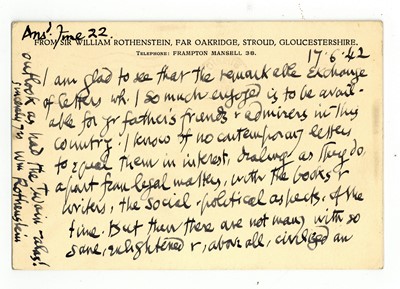 Ansd June 22.
FROM SIR WILLIAM ROTHENSTEIN, FAR OAKRIDGE, STROUD, GLOUCESTERSHIRE.
TELEPHONE: FRAMPTON MANSELL 38.
17.6.42
I am glad to see that the remarkable exchange
of letters wh. I so much enjoyed is to be avail-
able for yr father's friends & admirers in this
country. I know of no contemporary letters
to equal them in interest, dealing as they do,
apart from legal matters, with the books &
writers, the social-political aspects, of the
time. But then there are not many with so
sane, enlightened &, above all, civilized an
outlook as had the twain
Sincerely yrs Wm Rothenstein